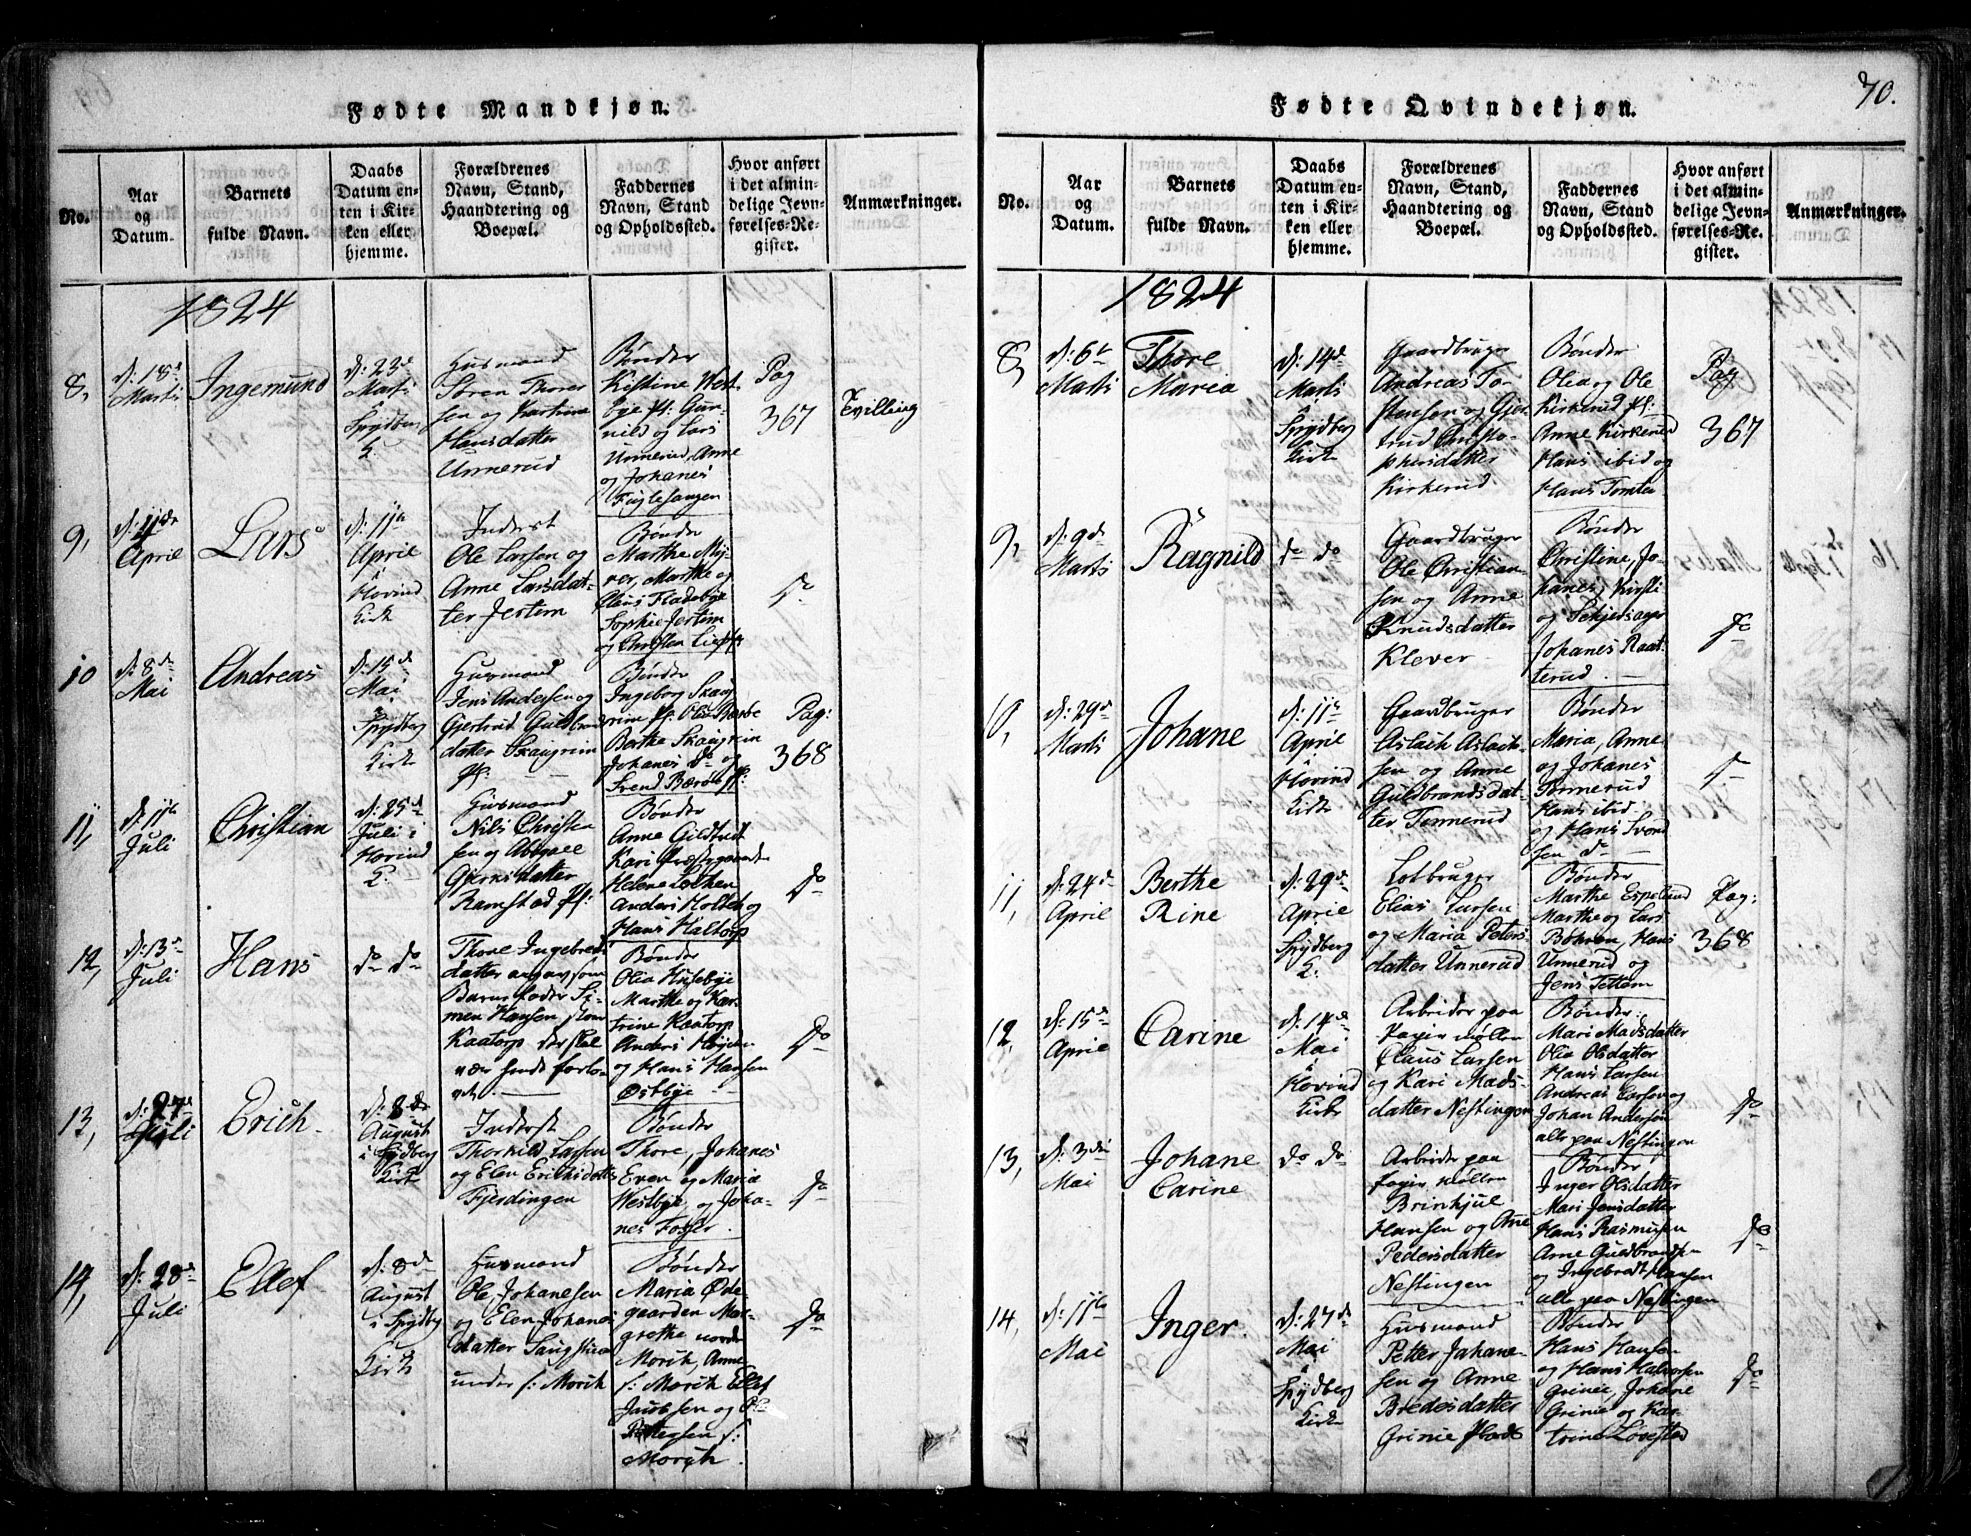 Fødte Mandkjøn.
No.
Aar
og
Datum.
Barnets
fulde Navn.
Daabs
Datum en-
ten i Kir-
ken eller
hjemme.
Forældrenes
Navn, Stand,
Haandtering og
Boepæl.
Faddernes
Navn, Stand
og Opholdssted.
Hvor anført
i det almin-
delige Jevn-
førelses-Re-
gister.
Anmærkninger.
1824
8,
d: 18de
Marti
Ingemund
d: 23de
Marti
Spydberg
K
Husmand
Søren Thor
sen og
Hansdatter
Unnerud
Bønder
Kistine West
bye Pl: Gun-
nild og Lars
Unnerud, Anne
og Johanes
Fuglesangen
Pag
367
Tvilling
9,
April
Lars
d: 11te
April
i
Hovind
Kirk
Inderst
Ole Larsen og
Anne Larsdat-
ter Jertem
Bønder
Marthe My-
rer, Marthe og
Fladebye
Sophie Jertem
og Christen
do
10
d: 8de
Mai
Andreas
d: 15de
Mai
Spydberg
Kirk
Husmand
Jens Andersen og
Gjertrud Guldbrand
datter Skaugrim
Pl:
Bønder
Ingeborg Skaug
rim Pl: Ole
Berthe Skaugrim
Johanes do og
Svend Pl:
Pag:
368
11,
d: 11te
Juli
Christian
d: 25de
Juli i
Hovind
K:
Husmand
Nils Christen
sen og Abegael
datter
Ramstad Pl:
Bønder
Anne
Kari
Helene
Anders Holter og
Hans Haltorp
do
12,
d: 13de
Juli
Hans
do do
Thore Ingebreds
datter angav som
Barne fader Si-
men Hansen
Kaatorp der skal
vær forlo-
vet.
Bønder
Olia Husebye
Marthe og Kar-
trine Kaatorp
Anders
og Hans Hansen
Østbye
do
13,
d: 27de
Juli
Erich.
d: 8de
August
i Spydberg
Kirk
Inderst
Thorkild Larsen
og Elen Erichsdatter
Fjerdingen
Bønder
Thore, Johanes
Even og Maria
Westbye, og Joha-
nes Fosser.
do
14,
d: 28de
Juli
Ellef
d: 8de
August
i Spydberg
Kirk
Husmand
Ole Johanesen
og Elen Johanes
datter
under s: Morik
Bønder
Maria Øde-
gaarden Mar-
grethe nordre
Morik, Anne
s: Morik Ellef
Jacobsen og Ole
Pettersen s:
Morik.
do
Fødte Qvindekjøn.
70.
No.
Aar
og
Datum.
Barnets
fulde Navn.
Daabs
Datum en-
ten i Kir-
ken eller
hjemme.
Forældrenes
Navn, Stand,
Haandtering og
Boepæl.
Faddernes
Navn, Stand
og Opholdssted.
Hvor anført
i det almin-
delige Jevn-
førelses-Re-
gister.
Anmærkninger.
1824
8,
d: 6te
Marti
Thore
Maria
d: 14de
Marti
Spydberg
Kirk
Gaardbruger
Andreas Tor-
stensen og Gjer-
trud Christo-
phersdatter
Kirkerud
Bønder
Olea og Ole
Kirkerud Pl:
Anne Kirkerud
Hans ibid og
Hans Tomter
Pag
367
9,
d: 9de
Marti
Ragnild
do do
Gaardbruger
Ole Christian-
sen og Anne
Knudsdatter
Klever
Bønder
Christine, Jo-
hanes, Kirsti
og
Johanes Raat-
terud.
do
10,
d: 29de
Marti
Johane
d: 11te
April
i Hovind
Kirk
Gaardbruger
Aslach Aslach-
sen og Anne
Guldbrandsdat-
ter Tennerud
Bønder
Maria, Anne
og Johanes
Tennerud
Hans ibid
og Hans
sen do
do
11,
d: 24de
April
Berthe
Rine
d: 29de
April
Spydberg
K:
Lotbruger
Elias Larsen
og Maria Peters-
datter Unnerud
Bønder
Marthe Espelund
Marthe og Lars
Hans
Unnerud og
Jens Tettem
Pag:
368
12,
d: 15de
April
Carine
d: 14de
Mai
i
Hovind
Kirk
Arbeider paa
Papir møllen
Claus Larsen
og Kari Mads-
datter Nestingen
Bønder:
Mari Madsdatter
Olia Olsdatter
Hans Larsen
Andreas Larsen og
Johan Andersen
alle paa Nestingen
do
13,
d: 3die
Mai
Johane
Carine
do do
Arbeider paa
Papir møllen
Brinkjul
Hansen og Ane
Pedersdatter
Nestingen
Bønder
Inger Olsdatter
Mari Jensdatter
Hans Rasmusen
Arne Guldbrandsen
og Ingebredt Hansen
alle paa Nestingen
do
14,
d: 11te
Mai
Inger.
d: 27de
Mai
i
Spydberg
Kirk
Husmand
Petter Johane-
sen og Anne
Bredesdatter
Grinie Plads
Bønder
Hans Hansen
og Hans Halvorsen
Grinie, Johane
Grinie og Kar-
trine Løvestad
do